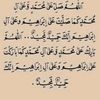 اَللّٰهُمَّ صَلِّ عَلٰى مُحَمَّدٍ وَّعَلٰٓى اٰلِ
مُحَمَّدٍ كَمَا صَلَّيْتَ عَلٰٓى اِبْرَاهِيْمَ وَعَلٰٓى اٰلِ
اِبْرَاهِيْمَ اِنَّكَ حَمِيْدٌ مَّجِيْدٌ اَللّٰهُمَّ
بَارِكْ عَلٰى مُحَمَّدٍ وَّعَلٰٓى اٰلِ مُحَمَّدٍ كَمَا
بَارَكْتَ عَلٰٓى اِبْرَاهِيْمَ وَعَلٰٓى اٰلِ اِبْرَاهِيْمَ اِنَّكَ
حَمِيْدٌ مَّجِيْدٌ